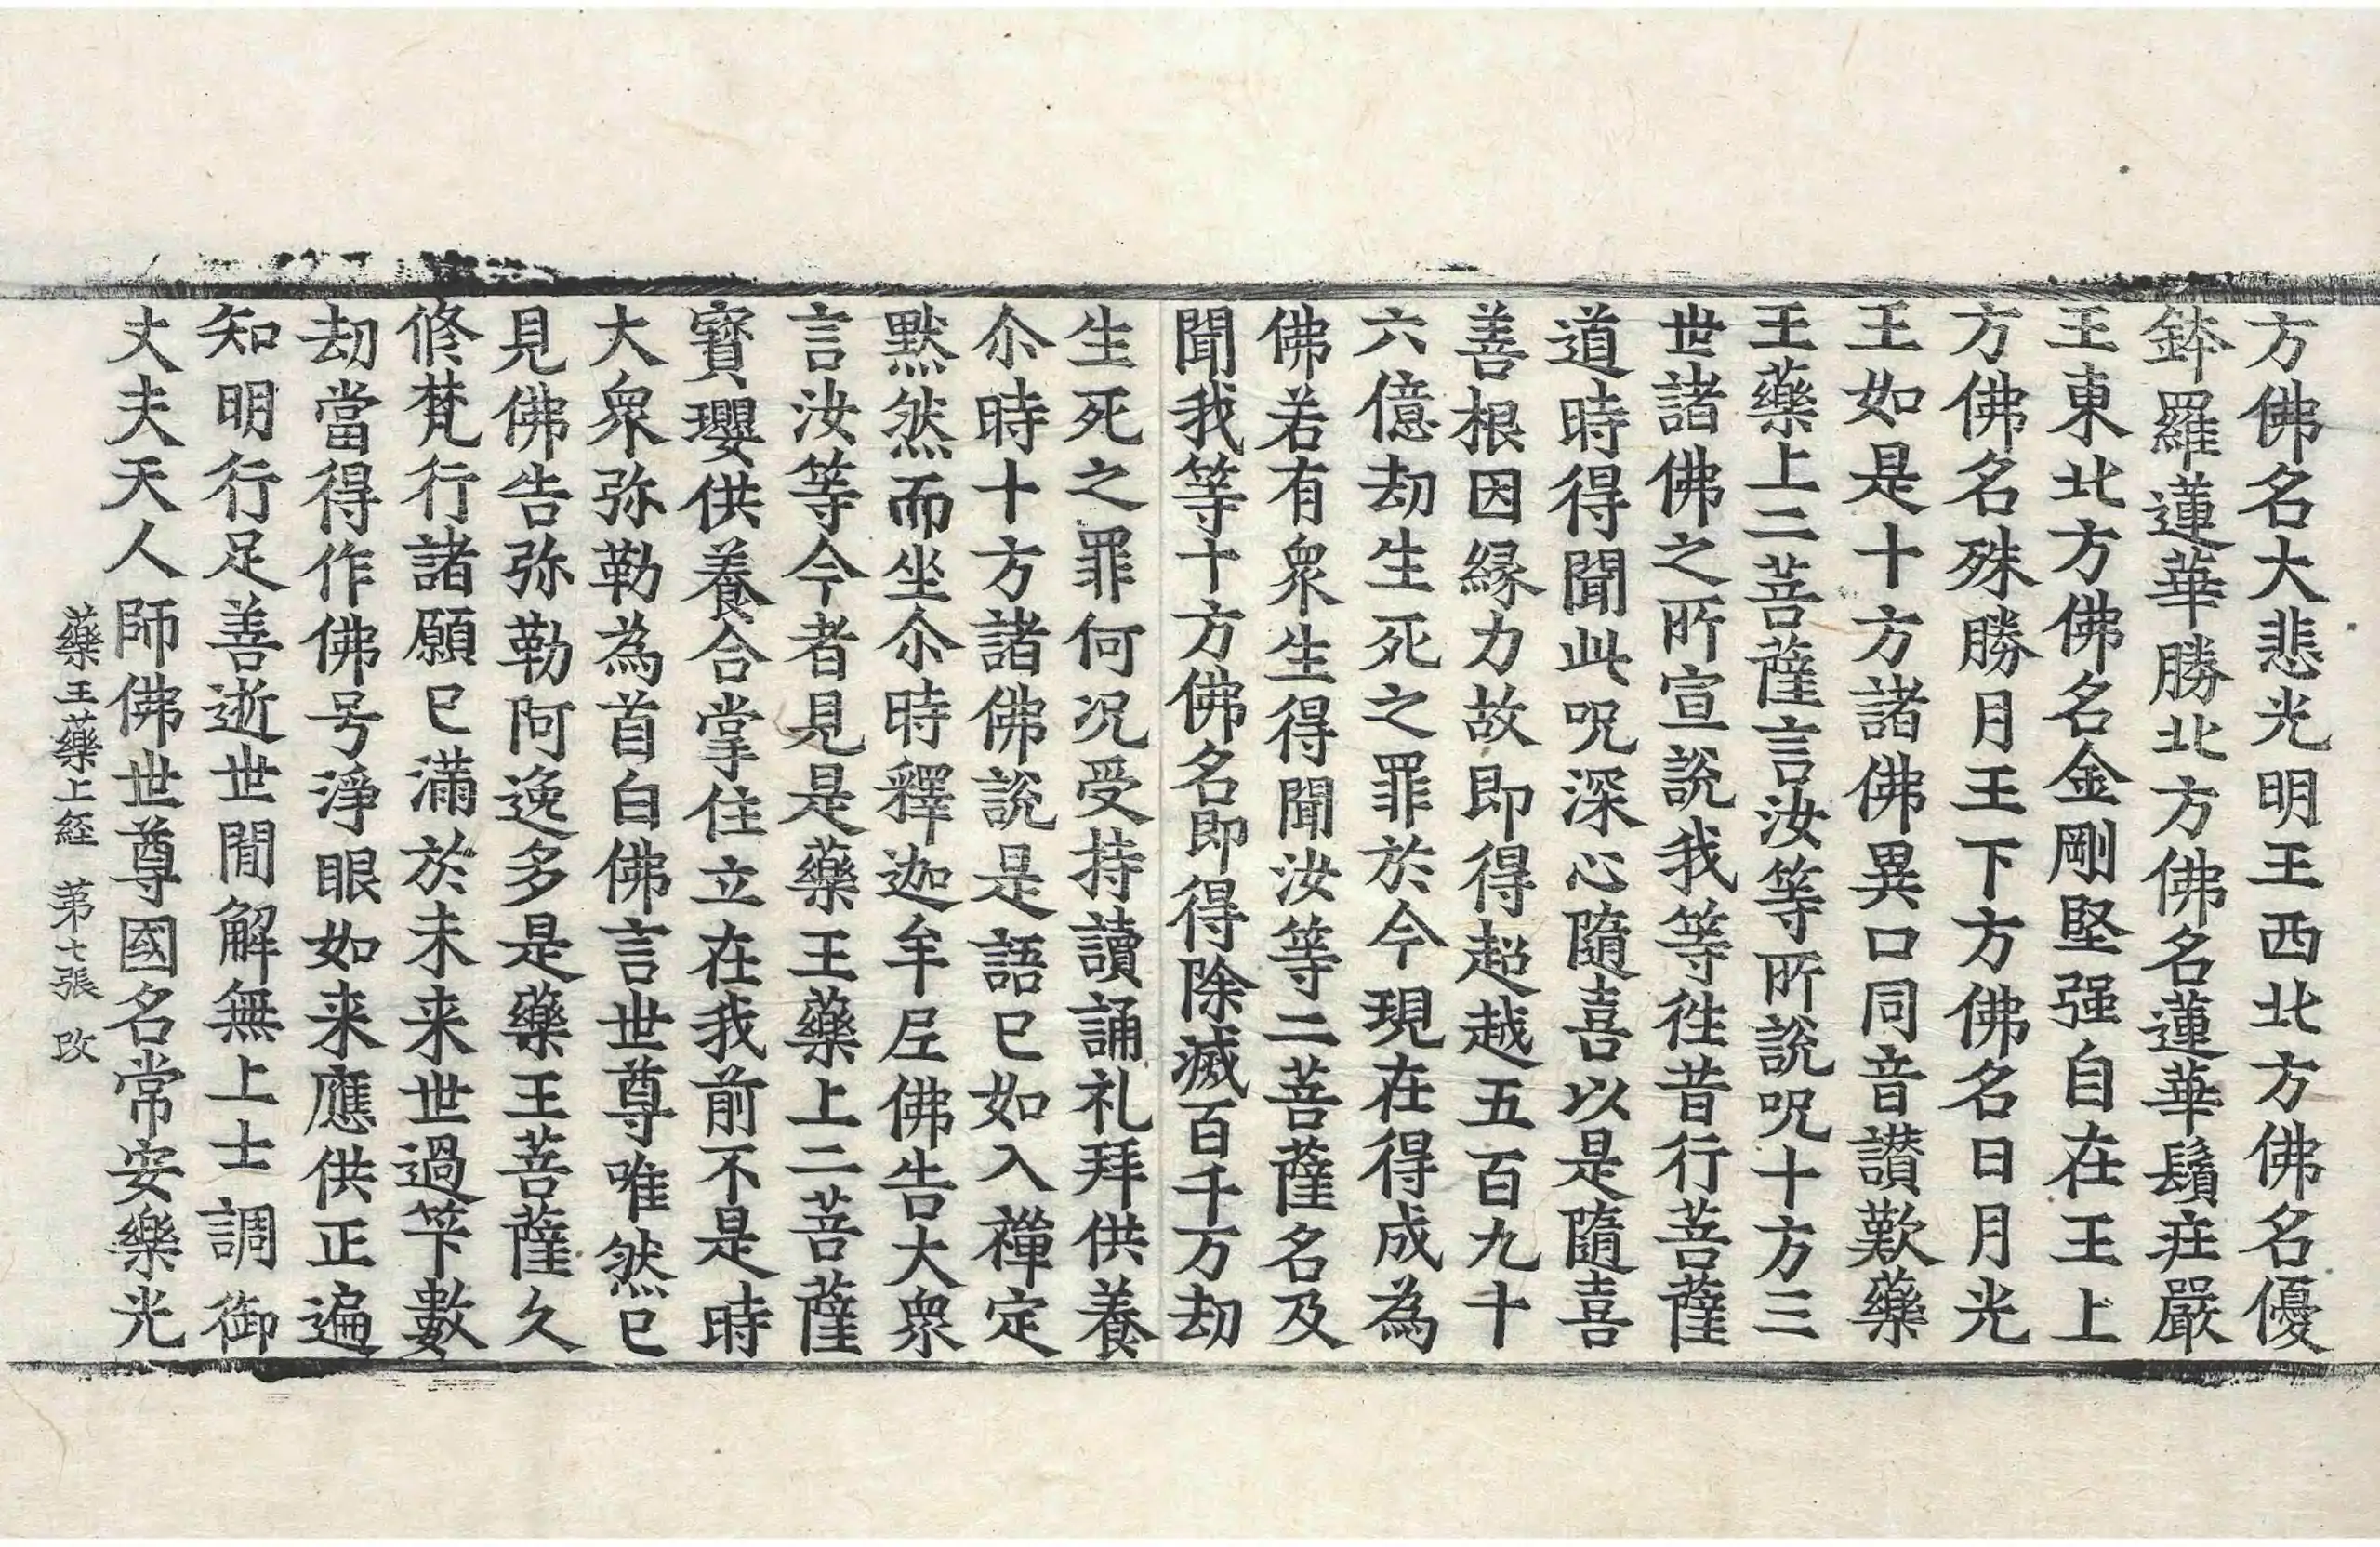 方佛名大悲光明王西北方佛名優
鉢羅蓮華勝北方佛名蓮華鬚庄嚴
王東北方佛名金剛堅强自在王上
方佛名殊勝月王下方佛名日月光
王如是十方諸佛異口同音讃歎藥
王藥上二菩薩言汝等所說呪十方三
世諸佛之所宣說我等徃昔行菩薩
道時得聞此呪深心隨喜以是隨喜
善根因緣力故即得超越五百九十
六億劫生死之罪於今現在得成為
佛若有衆生得聞汝等二菩薩名及
聞我等十方佛名即得除滅百千万劫
生死之罪何況受持讀誦礼拜供養
尒時十方諸佛說是語已如入禪定
黙然而坐尒時釋迦牟尼佛告大衆
言汝等今者見是藥王藥上二菩薩
寶瓔供養合掌住立在我前不是時
大衆弥勒為首白佛言世尊唯然已
見佛告弥勒阿逸多是藥王菩薩久
修梵行諸願已滿於未来世過筭數
劫當得作佛号淨眼如来應供正遍
知明行足善逝世間解無上士調御
丈夫天人師佛世尊國名常安樂光
藥王藥上経 苐七張 改